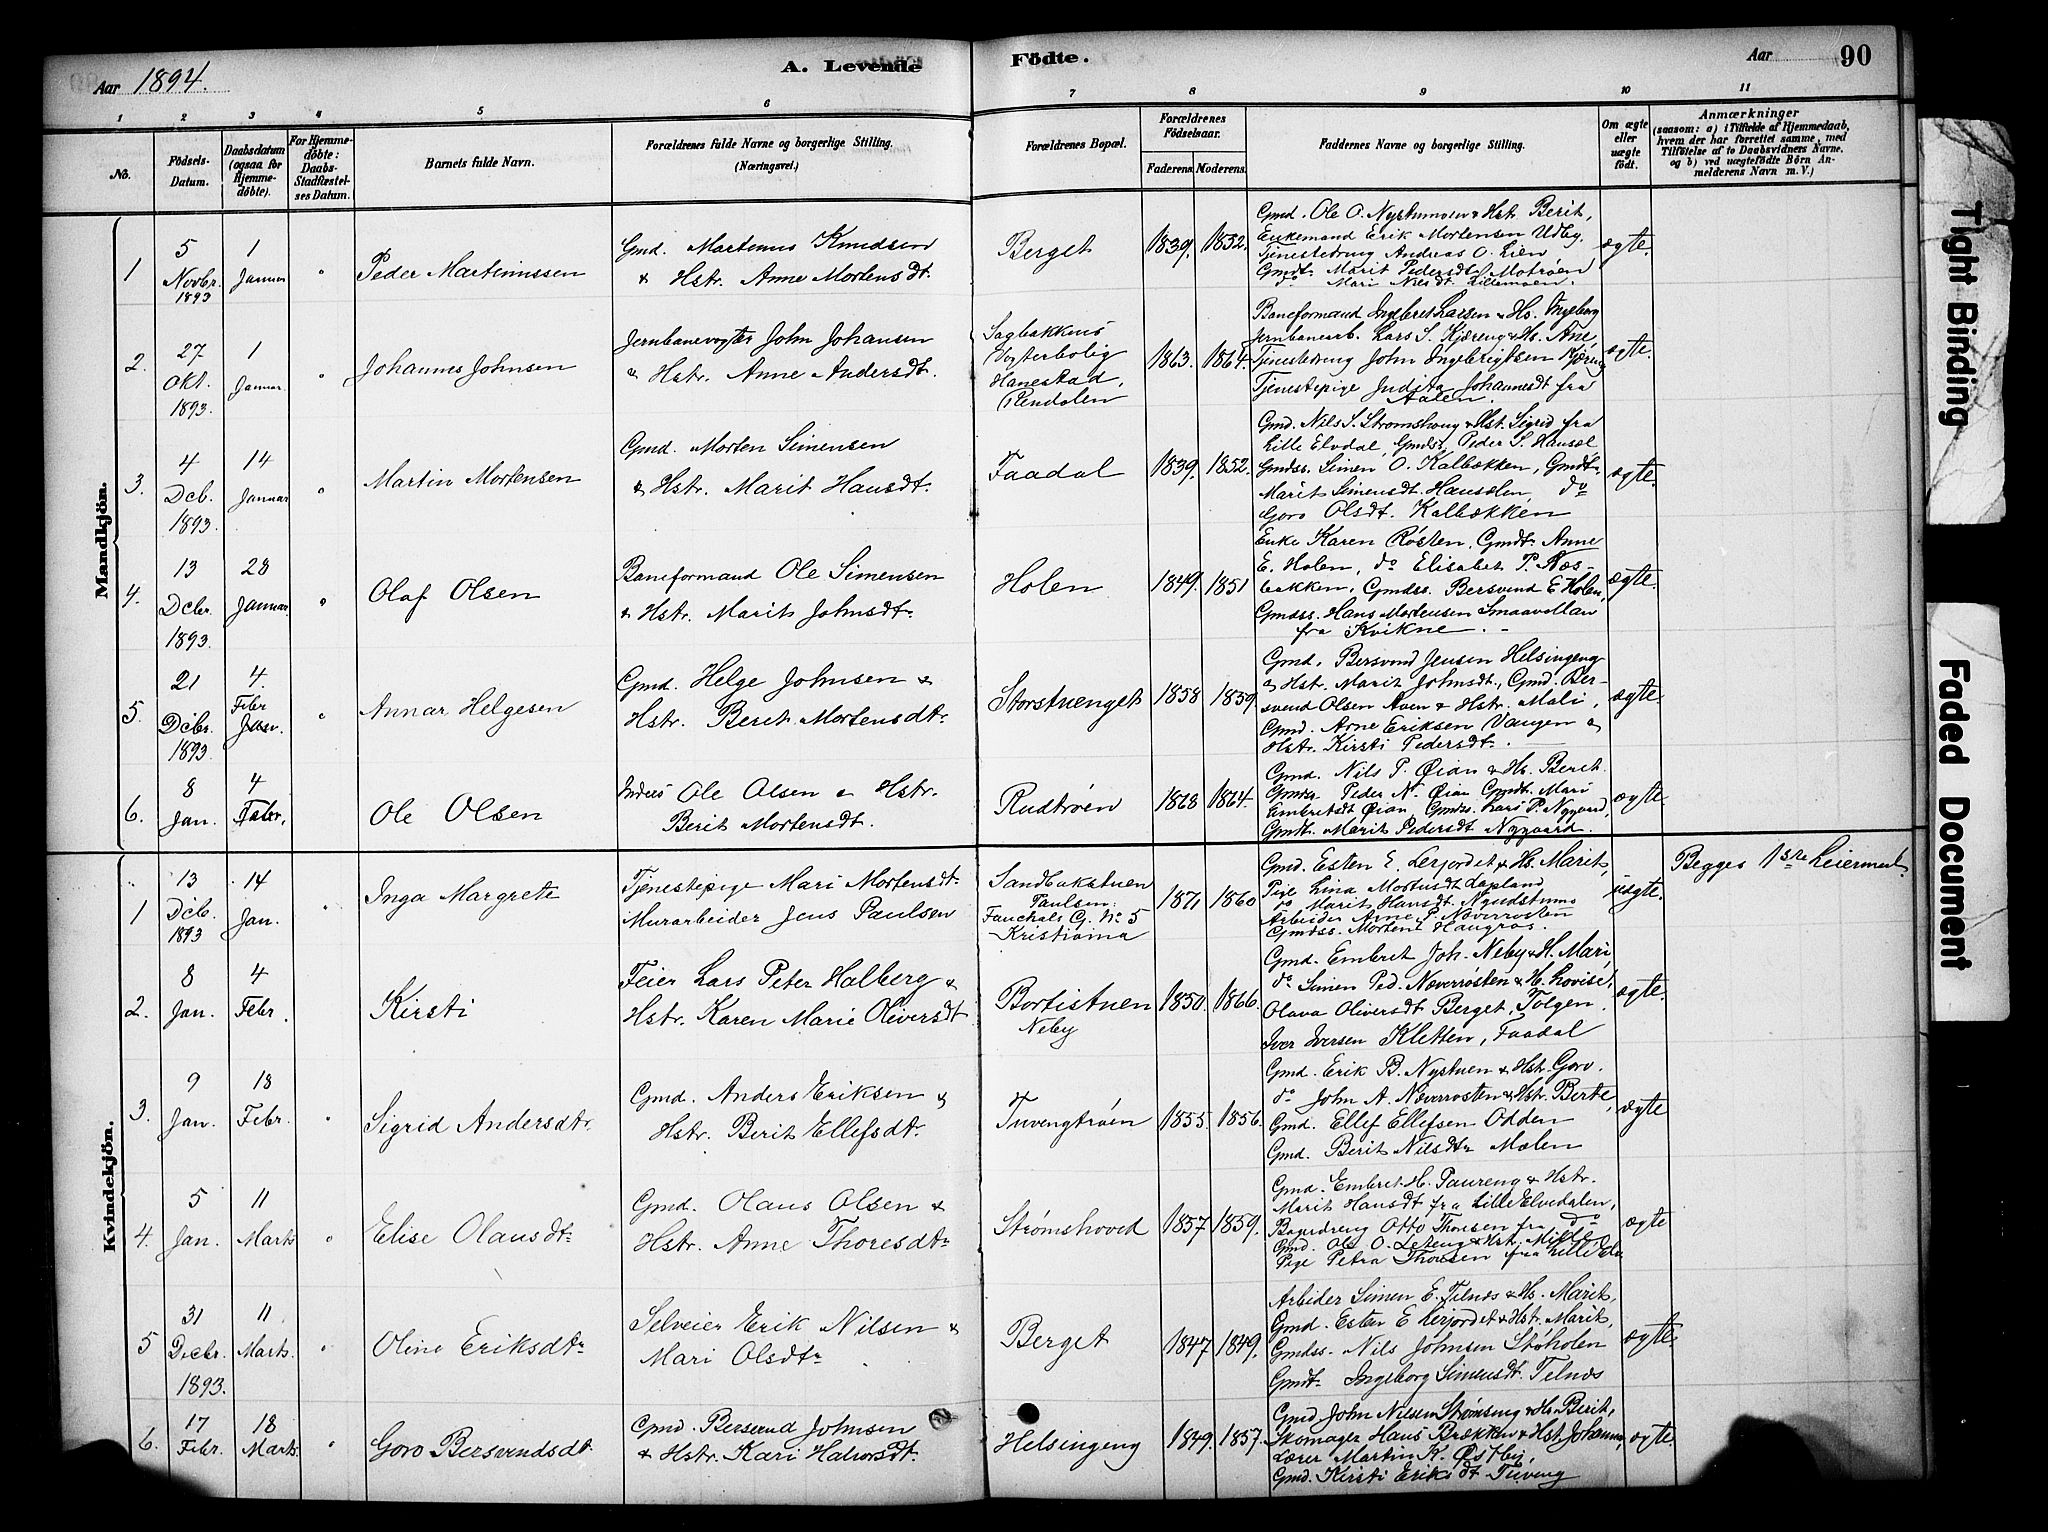 Aar 1894.
A. Levende Födte.
Aar
90
1 2 3 4 5 6 7 8 9 10 11
No.
Födsels-Datum.
Daabsdatum (ogsaa for Hjemmedöbte).
For Hjemmedöbte: Daabs-Stadfæstelses Datum.
Barnets fulde Navn.
Forældrenes fulde Navne og borgerlige Stilling. (Næringsvei.)
Forældrenes Bopæl.
Forældrenes Födselsaar.
Faderens. Moderens.
Faddernes Navne og borgerlige Stilling.
Om ægte eller uægte födt.
Anmærkninger
(saasom: a) i Tilfælde af Hjemmedaab, hvem der har forrettet samme, med Tilföielse af to Daabsvidners Navne, og b) ved uægtefödte Börn Anmelderens Navn m. V.)
Mandkjön.
1
5 Novbr. 1893
1 Januar
"
Peder Martinussen
Gmd. Martinus Knudsen
& Hstr. Anne Mortensdt.
Berget
1839. 1852.
Gmd. Ole O. Nystumoen & Hst. Berit,
Enkemand Erik Mortensen Udby,
Tjenestedreng Andreas O. Lien
Gmdt. Marit Pedersdt. Motrøen
do Mari Nilsdt. Lillemoen.
ægte.
2.
27 Okt. 1893.
1 Januar.
"
Johannes Johnsen
Jernbanevogter John Johansen
& Hstr. Anne Andersdt.
Sagbakkens
Vogterbolig
Hanestad,
Rendalen
1863. 1864.
Baneformand Ingebret Larsen & Hs. Ingeborg
Jernbanearb. Lars S. Kjæreng & Hs. Ane,
Tjenestedreng John Ingebrigtsen Kjæreng
Tjenestepige Judita Johannesdt fra
Aalen.
ægte.
3.
4 Dcb. 1893.
14 Januar
"
Martin Mortensen
Gmd. Morten Simensen
& Hstr. Marit Hansdt.
Faadal
1839. 1852.
Gmd. Nils S. Strømshoug & Hst. Sigrid fra
Lille Elvdal, Gmdss. Peder S.
Gmdss. Simen O. Kalbækken, Gmdt.
Marit Simensdt. do
Goro Olsdt. Kalbækken
ægte.
4.
13 Dcbr. 1893.
28 Januar.
"
Olaf Olsen
Baneformand Ole Simensen
& Hstr. Marit Johnsdt.
Holen
1849. 1851
Enke Karen Røsten, Gmdt. Anne
E. Holen, do Elisabet P. Ros-
bakken, Gmdss. Bersvend E Holen,
Gmdss. Hans Mortensen Smaavollan
fra Kvikne.
ægte.
5.
21 Dcbr. 1893
4. Febr
"
Annar Helgesen
Gmd. Helge Johnsen &
Hstr. Berit Mortensdt.
Storstuenget
1858 1859.
Gmd. Bersvend Jensen Helsingeng
& Hstr. Marit Johnsdt., Gmd. Ber-
svend Olsen Aven & Hstr. Mali,
Gmd. Arne Eriksen Vangen &
Hstr. Kirsti Pedersdt.
ægte.
6.
8 Jan.
4 Febr.
Ole Olsen
Inders Ole Olsen & Hstr.
Berit Mortensdt.
Rudtrøen
1868 1864.
Gmd. Nils P. Øian & Hs. Berit.
Gmdss. Peder N. Øian Gmdt. Mari
Embretsdt Øian, Gmdss. Lars P. Nygaard,
Gmdt. Marit Pedersdt Nygaard.
ægte.
Kvindekjön.
1
13 Dcb. 1893
14 Jan.
"
Inga Margrete
Tjenestepige Mari Mortensdt.
Murarbeider Jens Paulsen
Sandbakstuen
Paulsen:
Fauchals G. No 5
Kristiania
1871 1860
Gmd. Esten E. Lerjordet & Hs. Marit,
Pige Lina Lapland
do Marit Hansdt
Arbeider Arne P. Næverrosten
Gmdss. Morten Haugros.
uægte.
Begges 1ste Leiermaal.
2.
8 Jan.
4 Febr.
Kirsti
Feier Lars Peter Halberg &
Hstr. Karen Marie Oliversdt
Bortistuen
Neby
1850. 1866.
Gmd. Embret Joh. Neby & H. Mari,
do Simen Ped. Næverrøsten & H. Lovise,
Olava Oliversdt Berget, Tolgen,
Iver Iversen Kletten, Faadal
ægte.
3.
9 Jan.
18 Febr.
"
Sigrid Andersdt.
Gmd. Anders Eriksen &
Hstr. Berit Ellefsdt.
Tuvengtrøen
1855. 1856.
Gmd. Erik B. Nystuen & Hstr. Goro.
do John A. Næverrosten & Hstr. Berte,
Gmd. Ellef Ellefsen Odden
Gmd. Berit Nilsdtr Molen
ægte
4.
5 Jan.
11 Marts
"
Elise Olausdtr
Gmd. Olaus Olsen &
Hstr. Anne Thoresdtr
Strømshoved
1857 1859.
Gmd. Embret H. Paureng & Hstr.
Marit Hansdt fra Lille Elvedalen,
Bagerdreng Otto Thonsen fra do
Gmd. Ole O. & Hst. Milde
Pige Petra Thonsen fra Lille
ægte
5
31 Decbr. 1893.
11 Marts.
"
Oline Eriksdtr
Selveier Erik Nilsen &
Mari Olsdtr
Berget
1847 1849.
Arbeider Simen E. Telnes & Hs. Marit,
Gmd. Esten E Lerjordet & Hst. Marit,
Gmdss. Nils Johnsen Støholen
Gmdt. Ingeborg Simensdt. Telnes
ægte.
6.
17 Febr.
18 Marts.
"
Goro Bersvendsdt.
Gmd. Bersvend Johnsen
& Hstr. Kari Halvorsdt.
Helsingeng
1849. 1857.
Gmd John Nilsen Strømeng & Hs. Berit,
Skomager Hans Brækken & Hst Johanna,
Lærer Martin K. Østby,
Gmd. Kirsti Eriksdt Tuveng
ægte.
Tight Binding
Faded Document